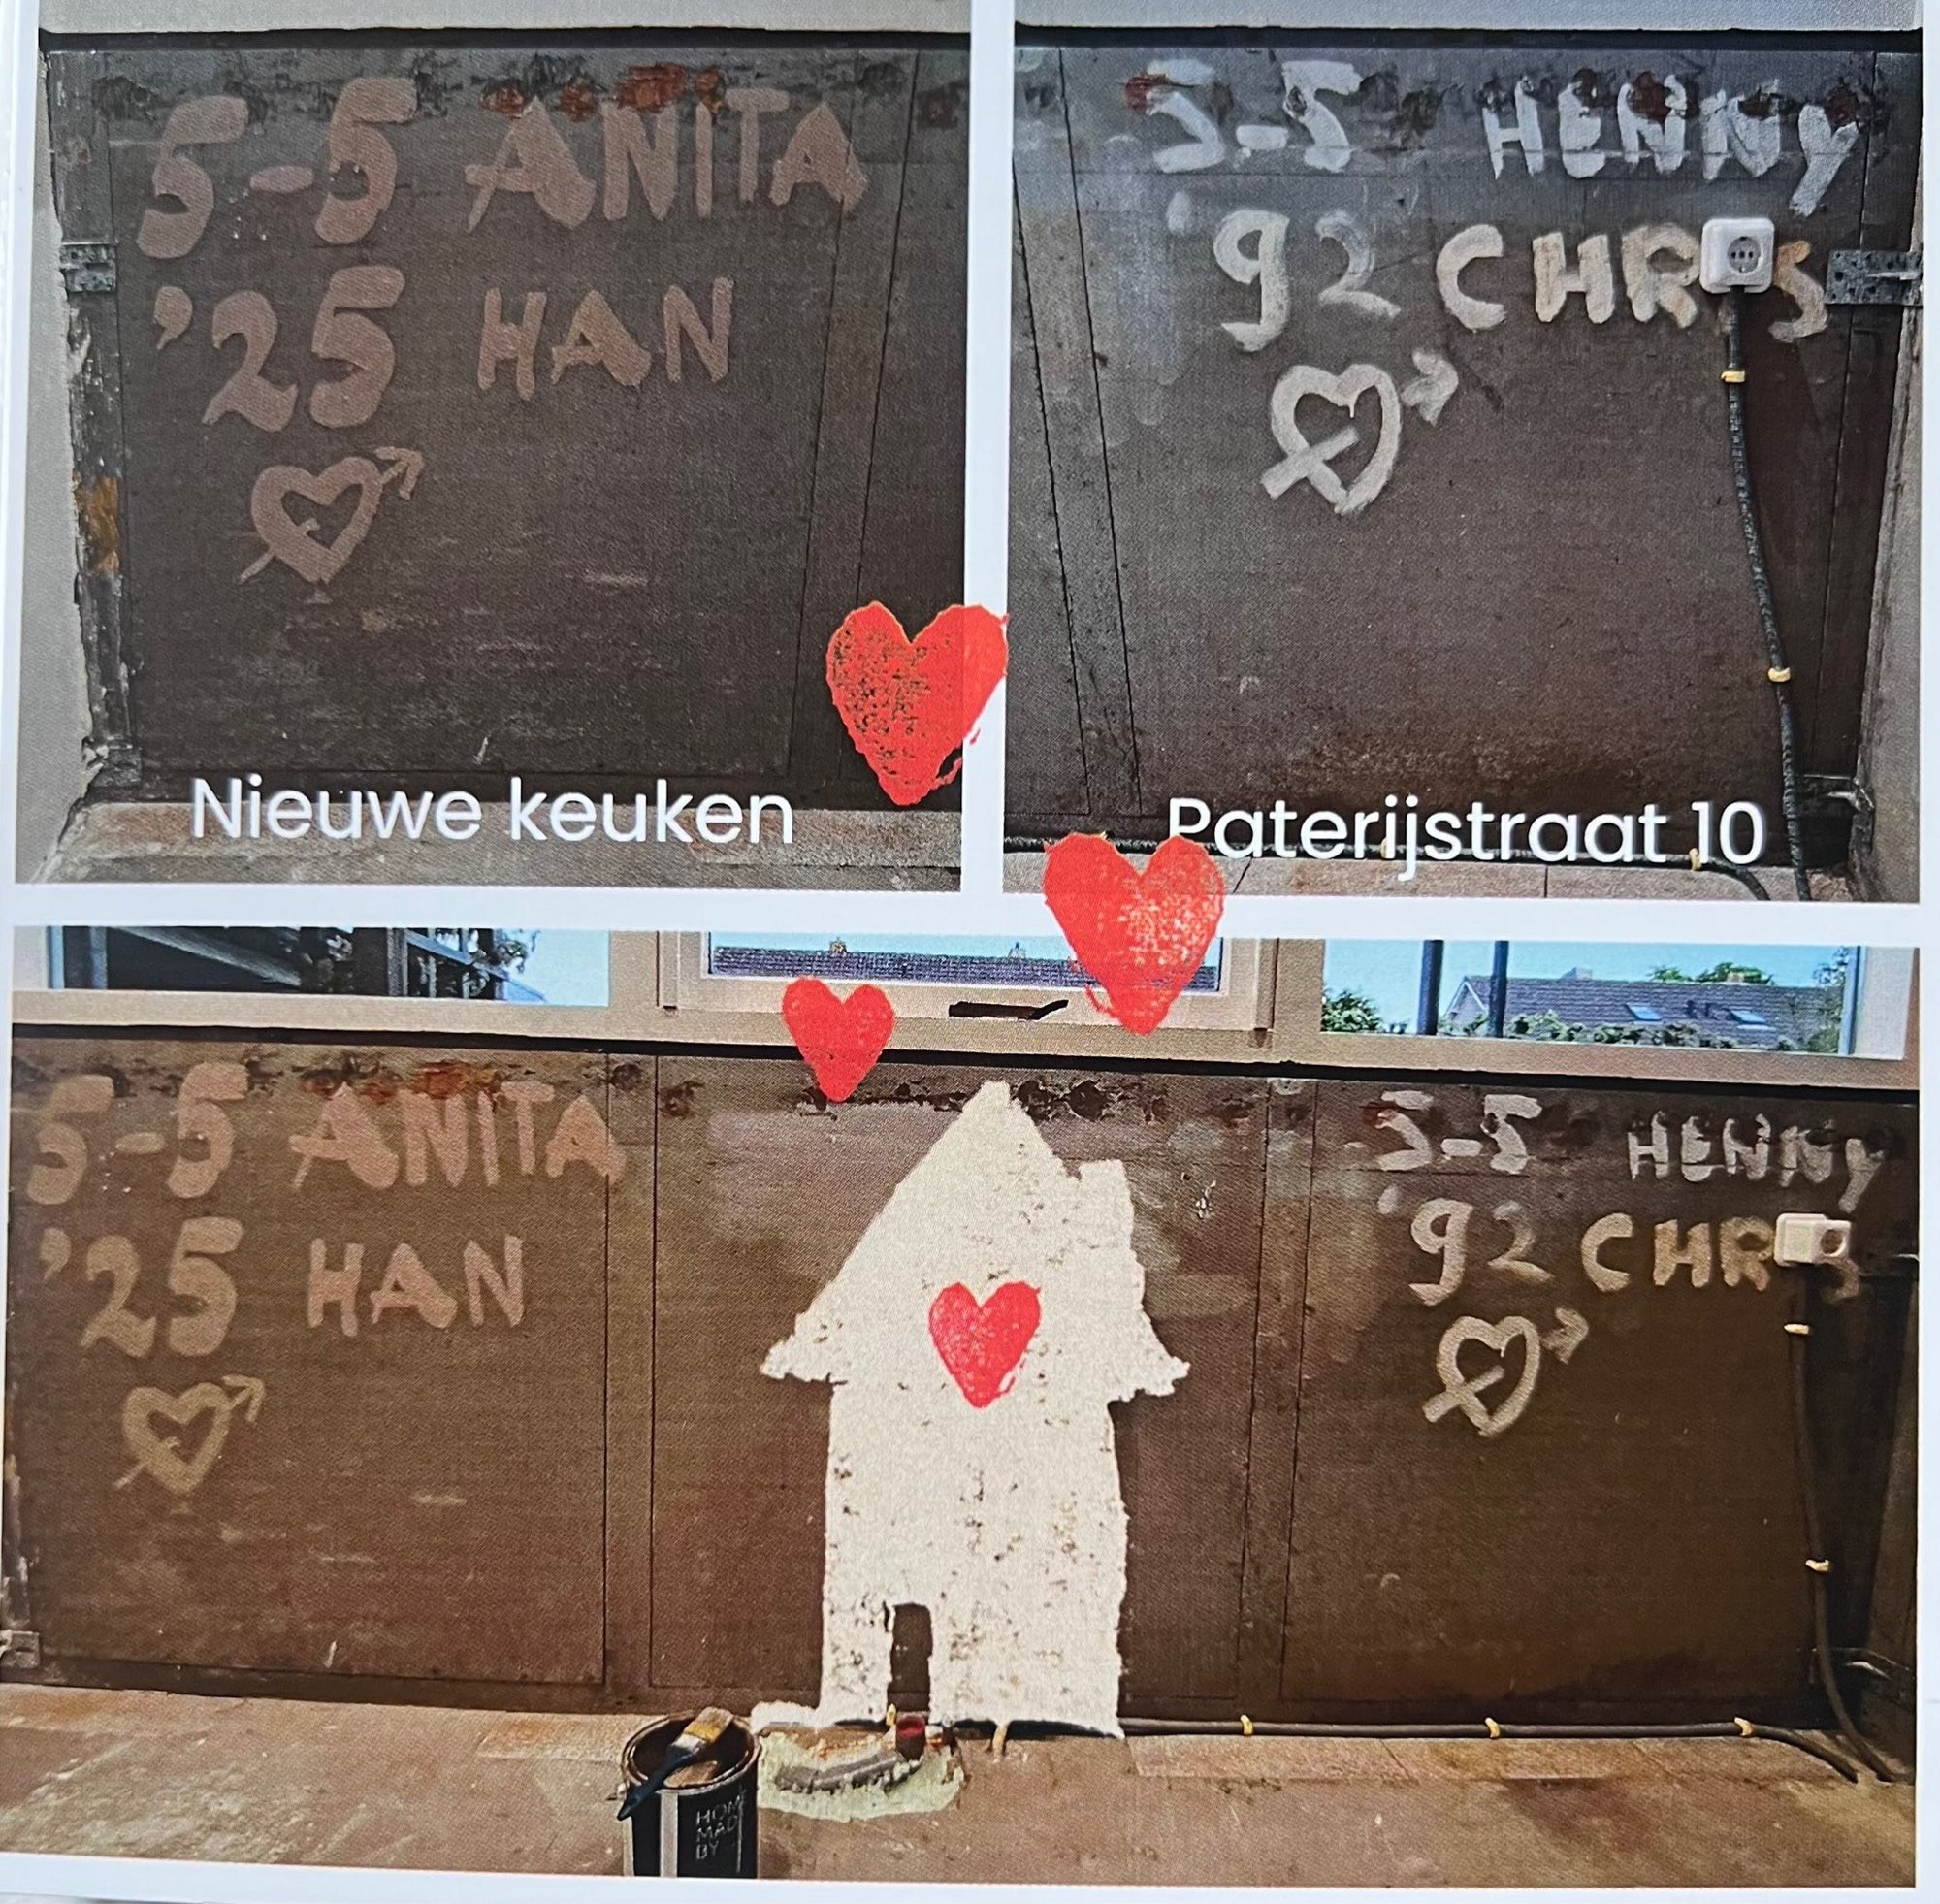 5-5 ANITA
'25 HAN
Nieuwe keuken
5-5 HENNY
'92 CHRS
Paterijstraat 10
5-5 ANITA
'25 HAN
5-5 HENNY
'92 CHRS
HOME
MADE
BY